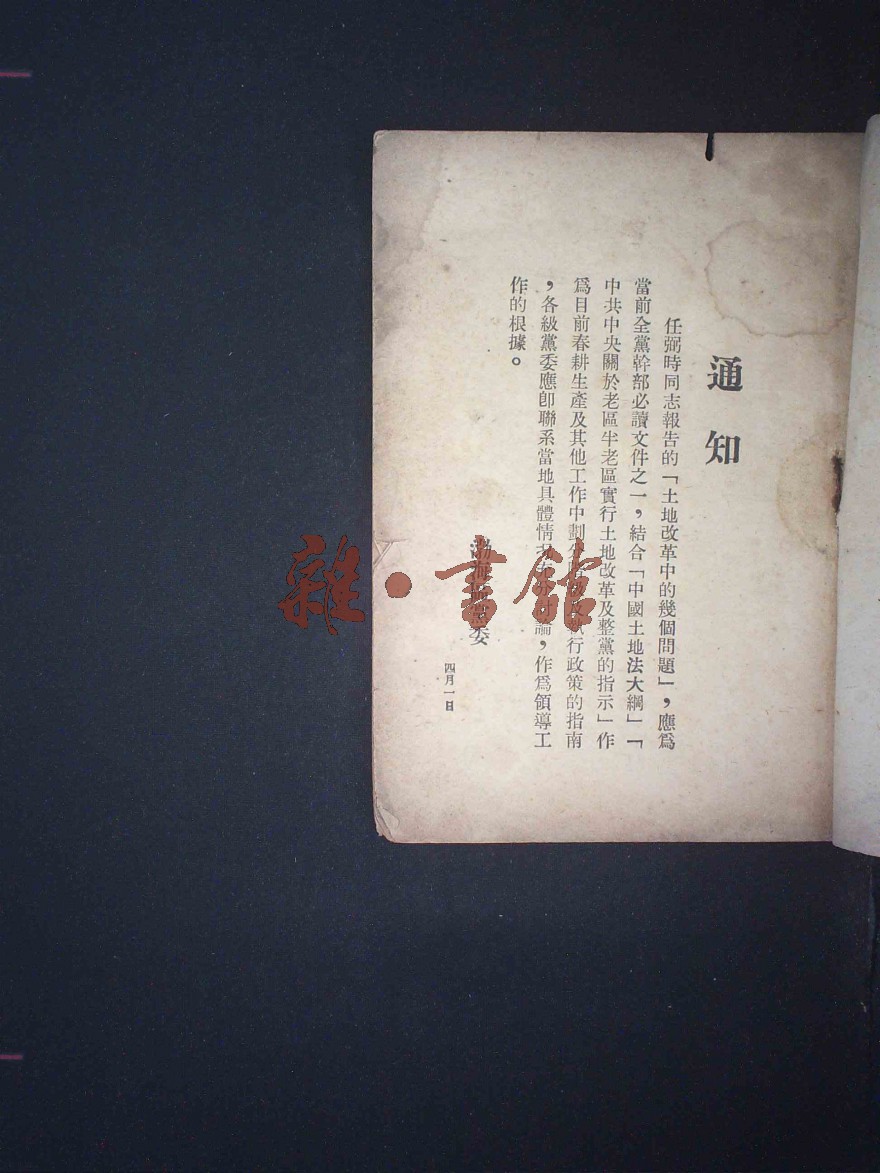 通知
任弼時同志報告的「土地改革中的幾個問題」，應爲
當前全黨幹部必讀文件之一，結合「中國土地法大綱」「
中共中央關於老區半老區實行土地改革及整黨的指示」作
爲目前春耕生產及其他工作中劃行政策的指南
，各級黨委應卽聯系當地具體情論，作爲領導工
作的根據。
渤海委
四月一日
雜·書館